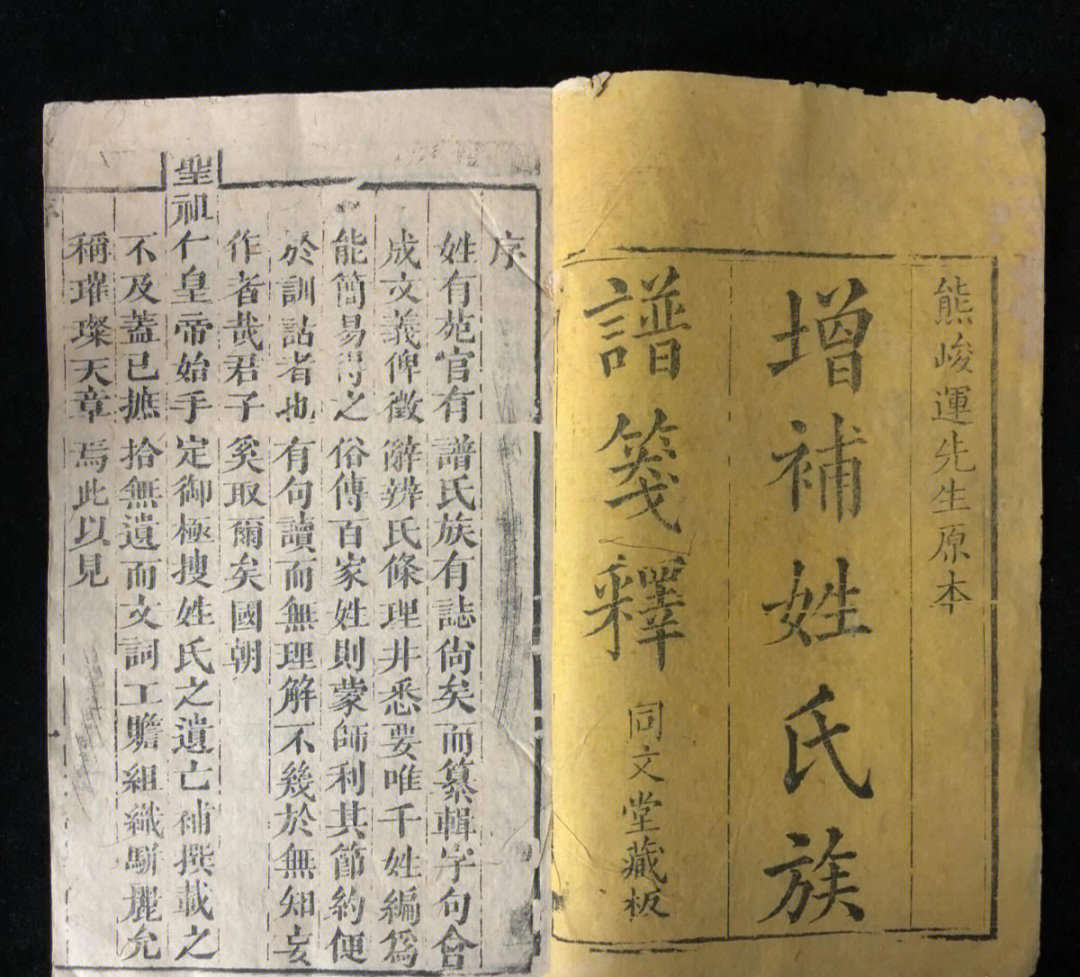 熊峻運先生原本
增補姓氏族
譜箋釋
同文堂藏板
序
姓有苑官有譜氏族有誌尙矣而纂輯字句會
成文義俾徵辭辨氏條理井悉要唯千姓編爲
能簡易得之俗傳百家姓則蒙師利其節約便
於訓詁者也有句讀而無理解不幾於無知妄
作者哉君子奚取爾矣國朝
聖祖仁皇帝始手定御極搜姓氏之遺亡補撰載之
不及蓋已摭拾無遺而文詞工贍組織駢麗允
稱璀璨天章焉此以見